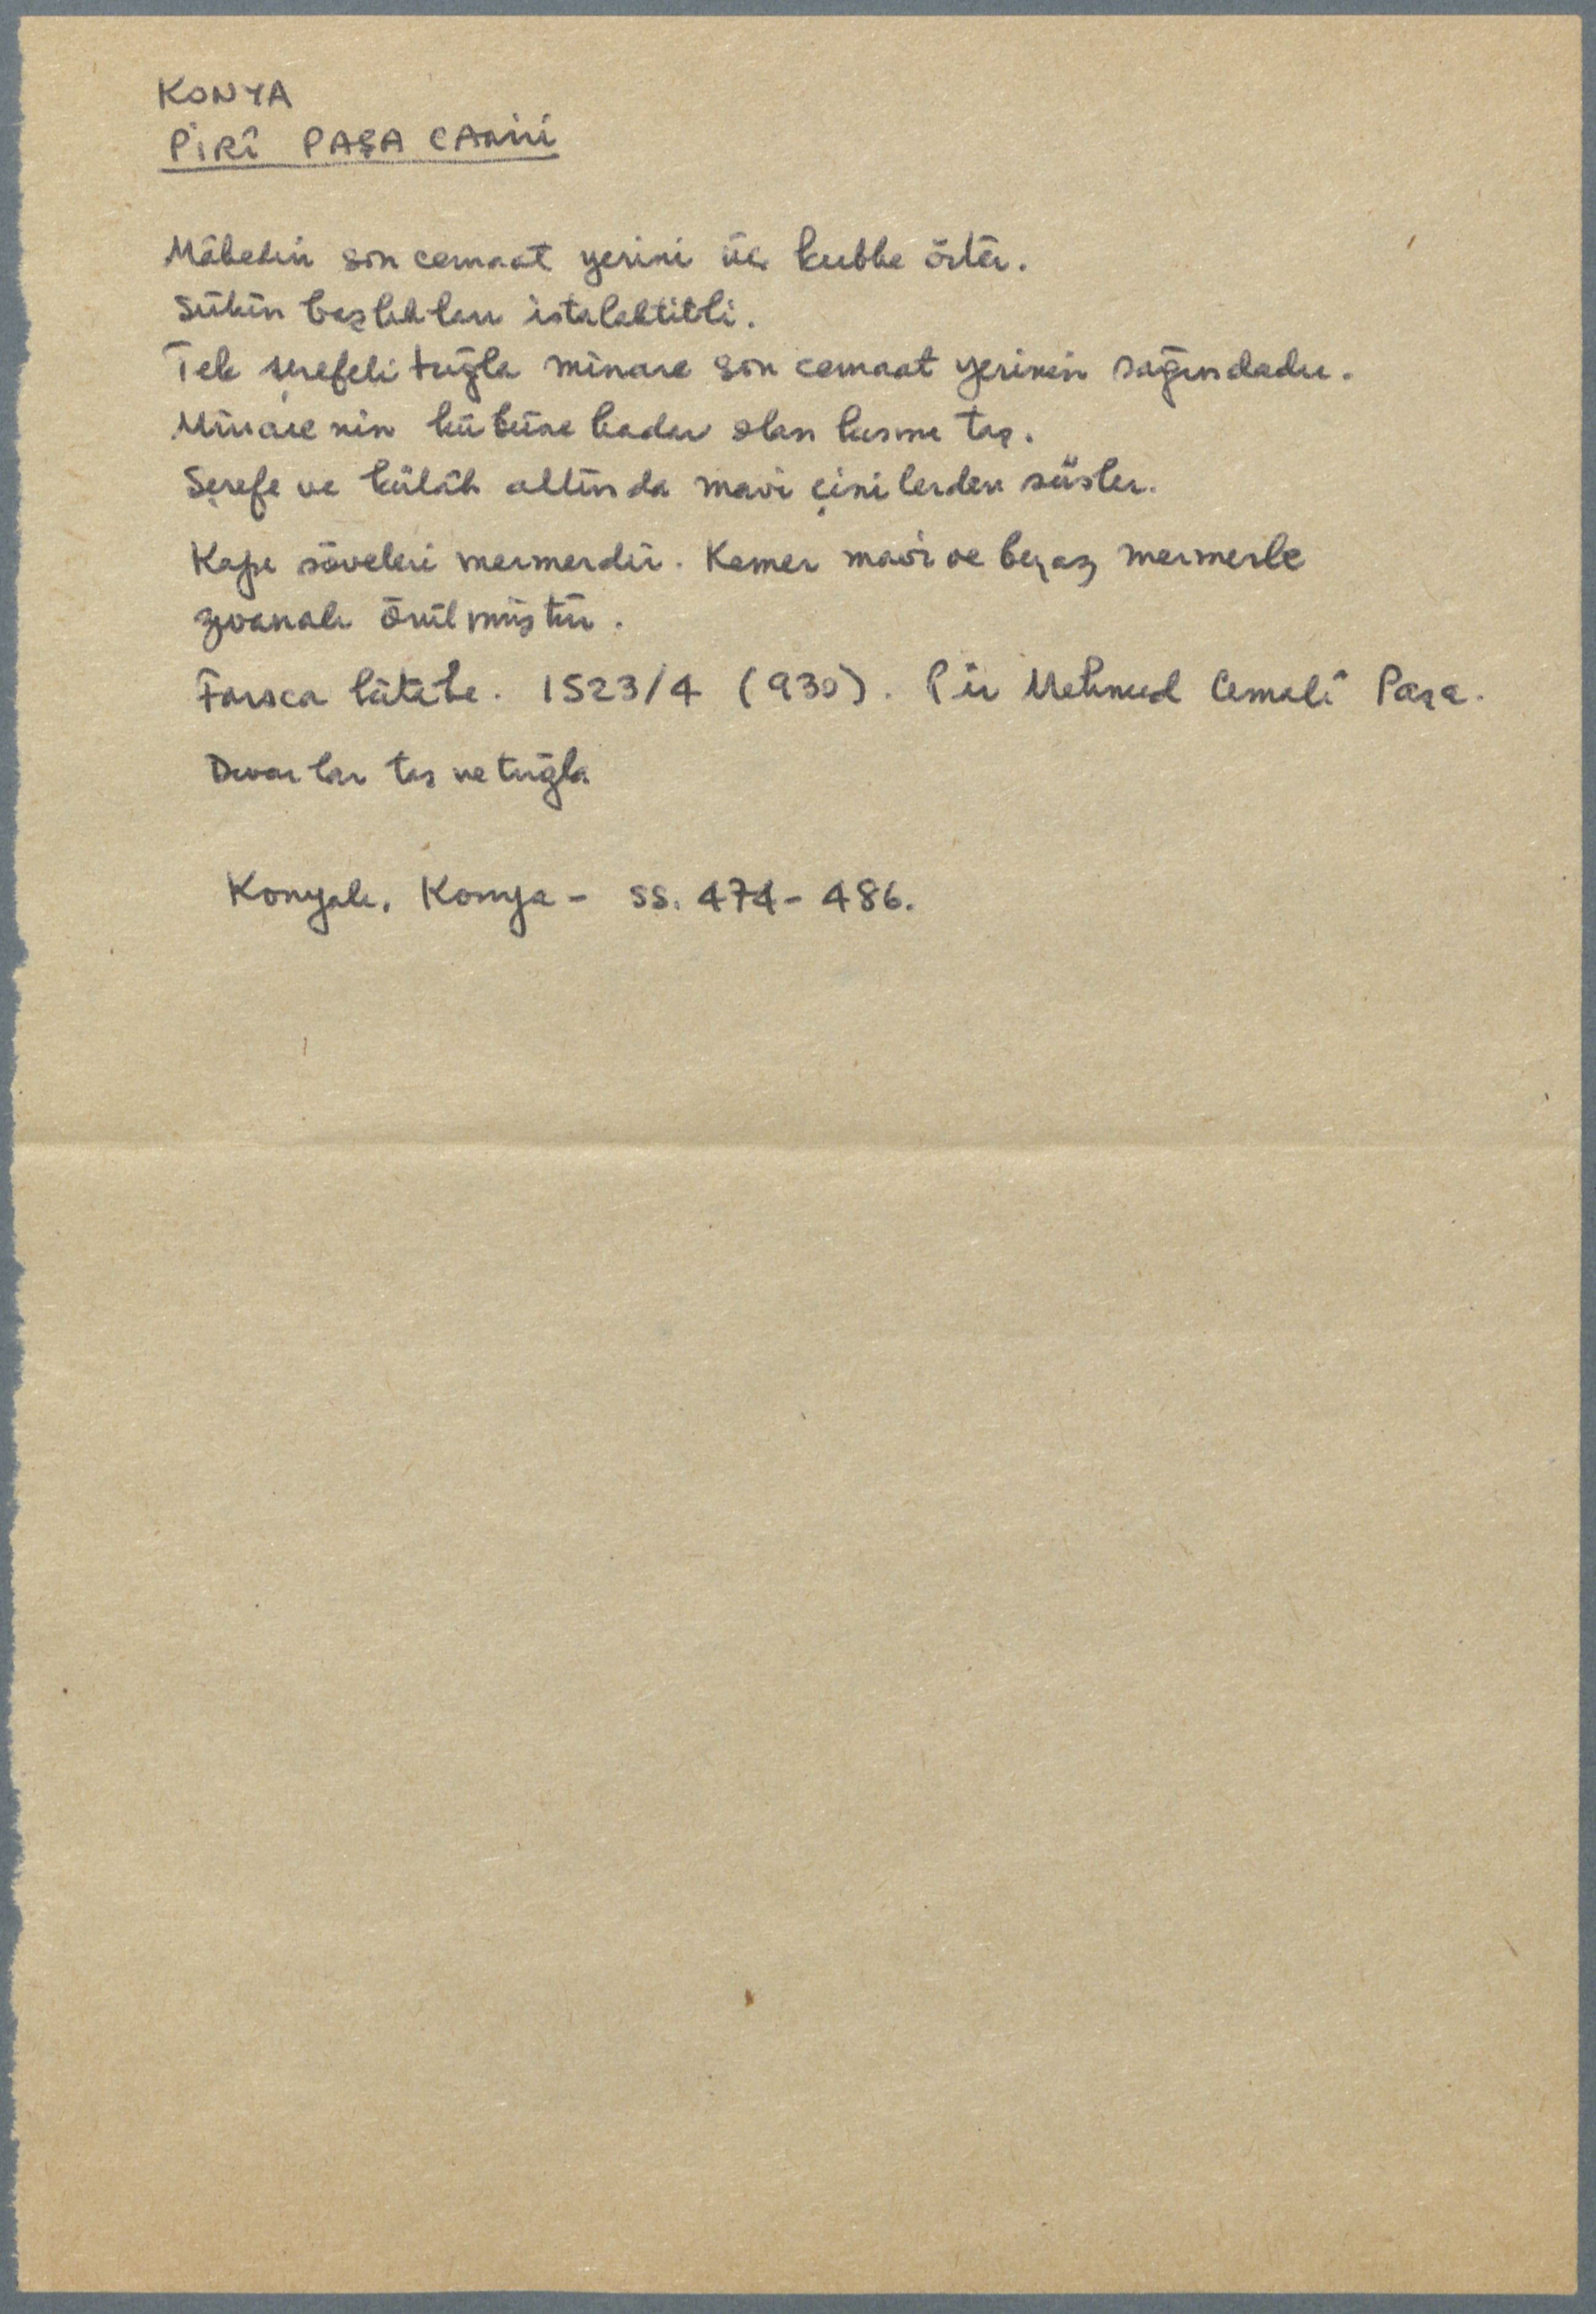 KONYA
PİRÎ PAŞA CAMİİ
Mâbedin son cemaat yerini üç kubbe örter.
Sütün başlıkları istalaktitli.
Tek şerefeli tuğla minare son cemaat yerinin sağındadır.
Minarenin kübüne kadar olan kısmı taş.
Şerefe ve külâh altında mavi çinilerden süsler.
Kapı söveleri mermerdir. Kemer mavi ve beyaz mermerle
zıvanalı örülmüştür.
Farsca kitabe. 1523/4 (930). Pir Mehmed Cemalî Paşa.
Duvarlar taş ve tuğla
Konyalı, Konya - ss. 474-486.